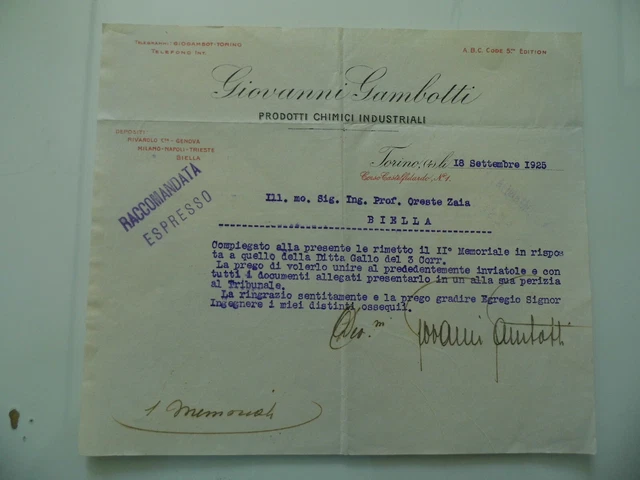 TELEGRAMMI: GIOGAMBOT-TORINO
TELEFONO INT.
A.B.C. CODE 5TH EDITION
Giovanni Gambotti
PRODOTTI CHIMICI INDUSTRIALI
DEPOSITI
RIVAROLO - GENOVA
MILANO-NAPOLI-TRIESTE
BIELLA
Torino, li 18 Settembre 1925
Corso Castelfidardo, N.1.
RACCOMANDATA
ESPRESSO
Ill. mo. Sig. Ing. Prof. Oreste Zaia
BIELLA
Compiegato alla presente le rimetto il II° Memoriale in rispos
ta a quello della Ditta Gallo del 3 Corr.
La prego di volerlo unire al prededentemente inviatole e con
tutti i documenti allegati presentarlo in un alla sua perizia
al Tribunale.
La ringrazio sentitamente e la prego gradire Egregio Signor
Ingegnere i miei distinti ossequii.
Dev. m
Giovanni Gambotti
1 Memoriale